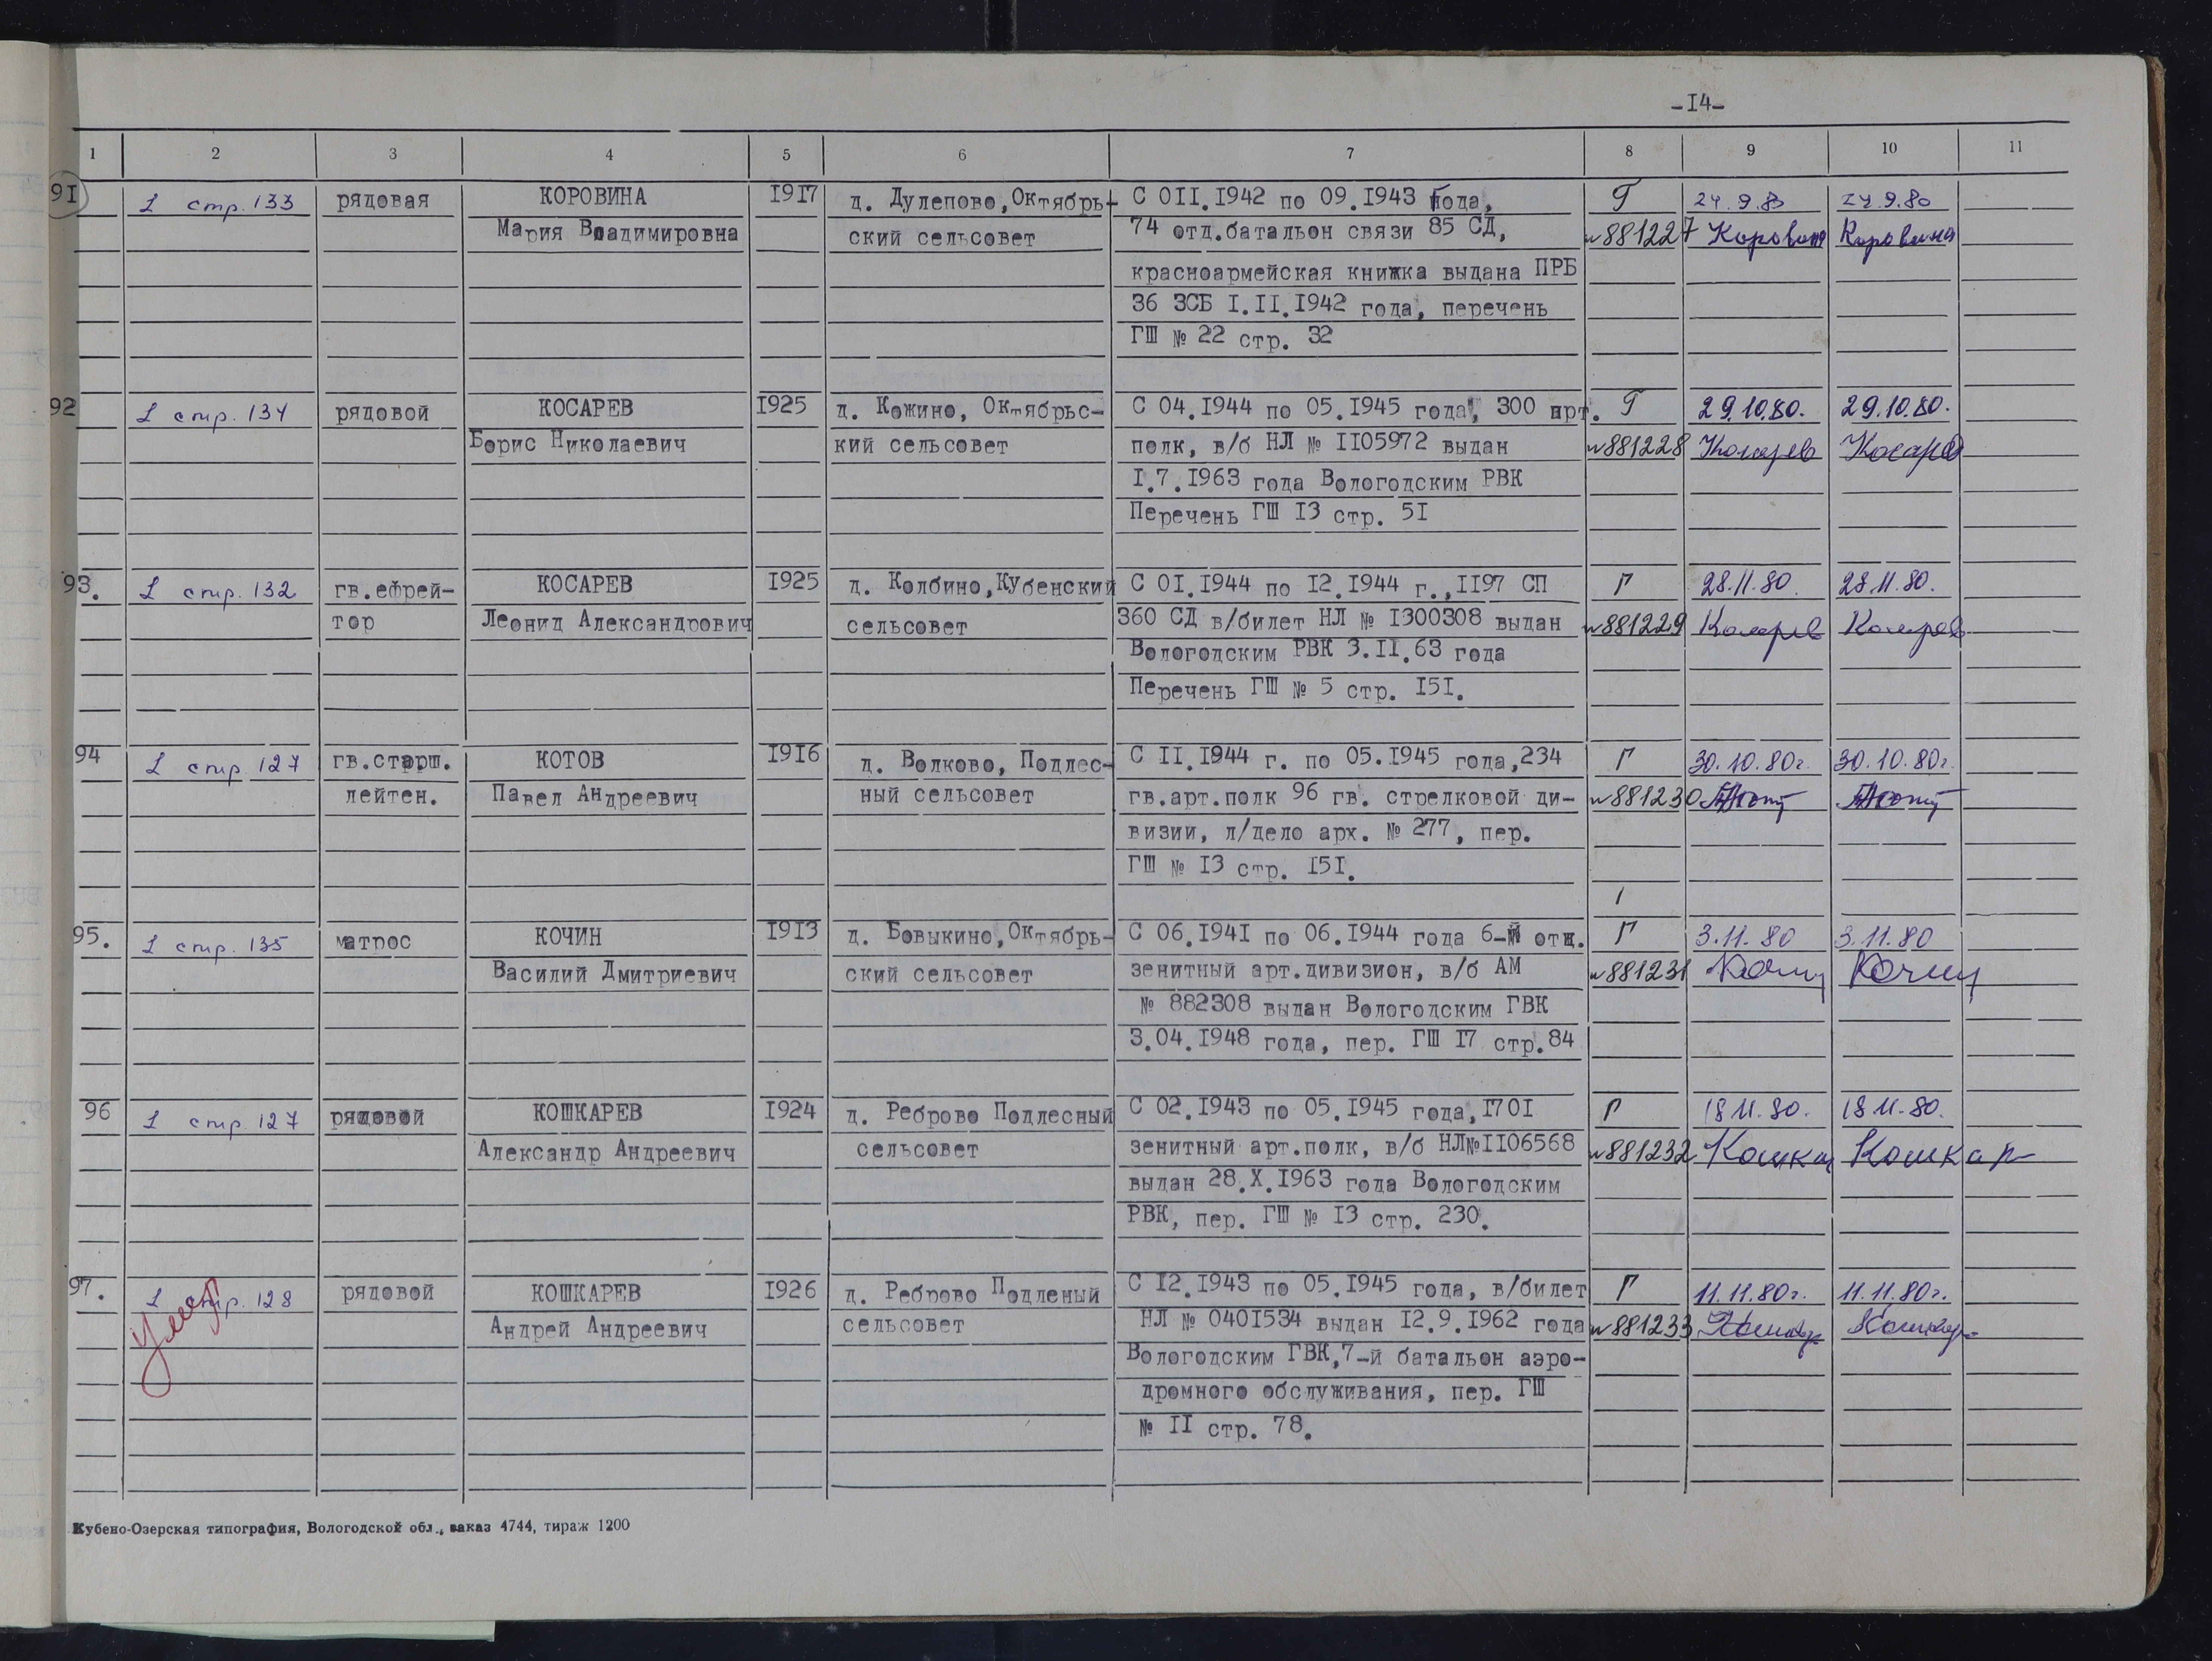 -14-
1 2 3 4 5 6 7 8 9 10 11
91 1 стр. 133 рядовая КОРОВИНА 1917 д. Дулепово, Октябрь- С 011.1942 по 09.1943 года, Г 24.9.80 24.9.80
Мария Владимировна ский сельсовет 74 отд.батальон связи 85 СД, №881227 Коровина Коровина
красноармейская книжка выдана ПРБ
36 ЗСБ I.II.1942 года, перечень
ГШ № 22 стр. 32
92 1 стр. 134 рядовой КОСАРЕВ 1925 д. Кожино, Октябрьс- С 04.1944 по 05.1945 года, 300 арт. Г 29.10.80. 29.10.80.
Борис Николаевич кий сельсовет полк, в/б НЛ № 1105972 выдан №881228 Косарев Косарев
I.7.1963 года Вологодским РВК
Перечень ГШ 13 стр. 51
93. 1 стр. 132 гв.ефрей- КОСАРЕВ 1925 д. Колбино, Кубенский С 01.1944 по 12.1944 г., 1197 СП Г 28.11.80. 28.11.80.
тор Леонид Александрович сельсовет 360 СД в/билет НЛ № 1300308 выдан №881229 Косарев Косарев
Вологодским РВК 3.II.63 года
Перечень ГШ № 5 стр. 151.
94 1 стр. 127 гв.старш. КОТОВ 1916 д. Волково, Подлес- С II.1944 г. по 05.1945 года, 234 Г 30.10.80г. 30.10.80г.
лейтен. Павел Андреевич ный сельсовет гв.арт.полк 96 гв. стрелковой ди- №881230
визии, л/дело арх. № 277, пер.
ГШ № 13 стр. 151.
95. 1 стр. 135 матрос КОЧИН 1913 д. Бовыкино, Октябрь- С 06.1941 по 06.1944 года 6-й отд. Г 3.11.80 3.11.80
Василий Дмитриевич ский сельсовет зенитный арт.дивизион, в/б АМ №881231 Кочин Кочин
№ 882308 выдан Вологодским ГВК
3.04.1948 года, пер. ГШ 17 стр.84
96 1 стр. 127 рядовой КОШКАРЕВ 1924 д. Реброво Подлесный С 02.1943 по 05.1945 года, 1701 Г 18.11.80. 18.11.80.
Александр Андреевич сельсовет зенитный арт.полк, в/б НЛ№1106568 №881232 Кошкар Кошкар
выдан 28.X.1963 года Вологодским
РВК, пер. ГШ № 13 стр. 230.
97. 1 стр. 128 рядовой КОШКАРЕВ 1926 д. Реброво Подленый С 12.1943 по 05.1945 года, в/билет Г 11.11.80г. 11.11.80г.
умер Андрей Андреевич сельсовет НЛ № 0401534 выдан 12.9.1962 года №881233 Кошкар Кошкар
Вологодским ГВК, 7-й батальон аэро-
дромного обслуживания, пер. ГШ
№ II стр. 78.
Кубено-Озерская типография, Вологодской обл., заказ 4744, тираж 1200